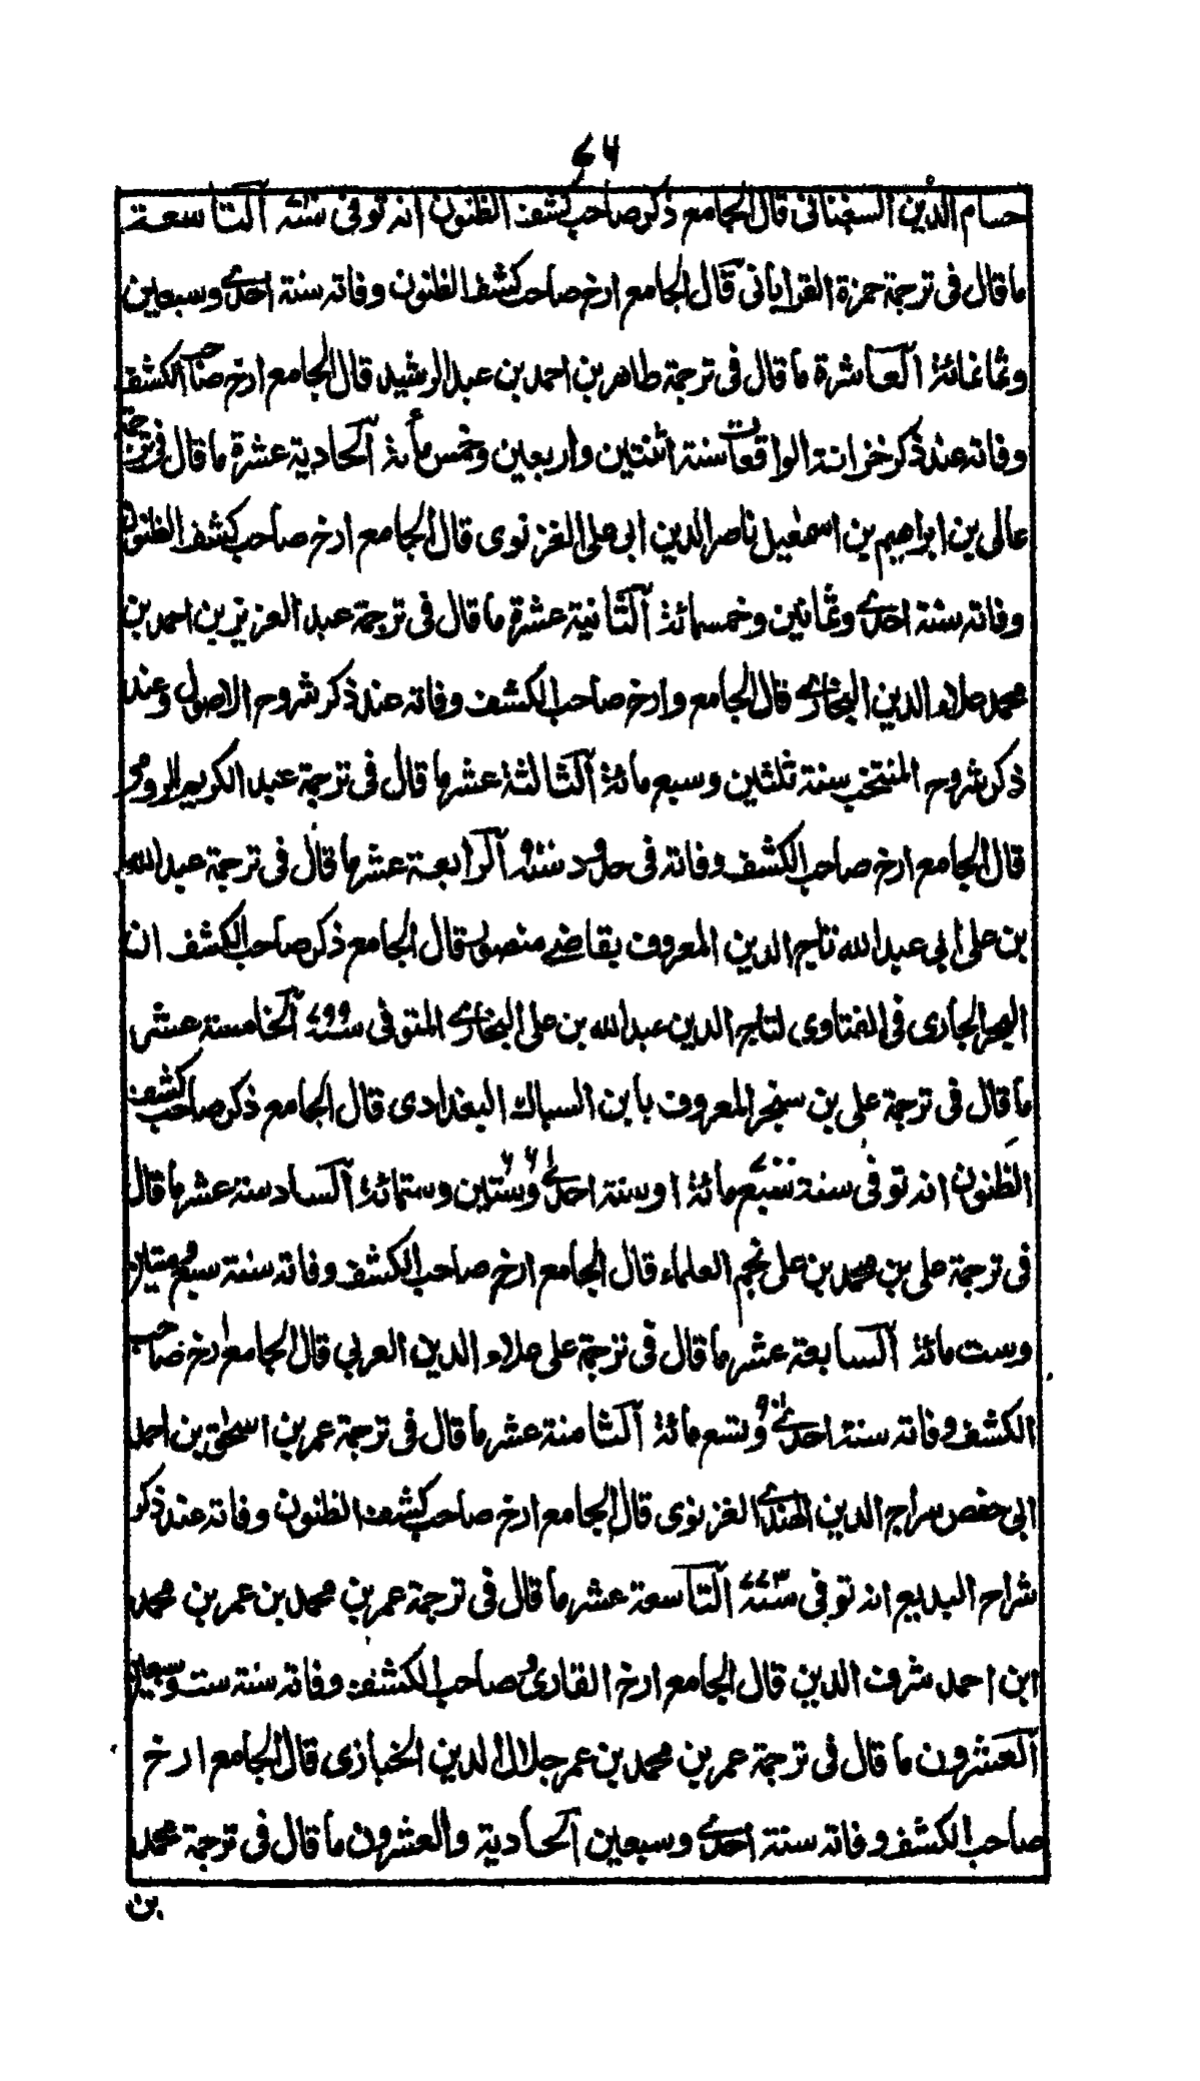 ٧٦
حسام الدين السغناقى قال الجامع ذكر صاحب كشف الظنون انه توفى سنة التاسعة
ما قال فى ترجمة حمزة القرامانى قال الجامع ارخ صاحب كشف الظنون وفاته سنة احدى وسبعين
وثمانمائة العاشرة ما قال فى ترجمة طاهر بن احمد بن عبد الرشيد قال الجامع ارخ صاحب الكشف
وفاته عند ذكر خزانة الواقعات سنة اثنتين واربعين وخمس مائة الحادية عشرة ما قال فى ترجمة
عالى بن ابراهيم بن اسمعيل ناصر الدين ابى على الغزنوى قال الجامع ارخ صاحب كشف الظنون
وفاته سنة احدى وثمانين وخمسمائة الثانية عشرة ما قال فى ترجمة عبد العزيز بن احمد بن
محمد علاء الدين البخارى قال الجامع وارخ صاحب الكشف وفاته عند ذكر شروح الاصول وعند
ذكر شروح المنتخب سنة ثلثين وسبع مائة الثالثة عشر ما قال فى ترجمة عبد الكريم الرومى
قال الجامع ارخ صاحب الكشف وفاته فى حدود سنة ٩٠٠ الرابعة عشر ما قال فى ترجمة عبد الله
بن على ابى عبد الله تاج الدين المعروف بقاضى منصور قال الجامع ذكر صاحب الكشف ان
البحر الجارى فى الفتاوى لتاج الدين عبد الله بن على البخارى المتوفى سنة ٧٩٩ الخامسة عشر
ما قال فى ترجمة على بن سنجر المعروف بابن السباك البغدادى قال الجامع ذكر صاحب كشف
الظنون انه توفى سنة سبع مائة او سنة احدى وستين وستمائة السادسة عشر ما قال
فى ترجمة على بن محمد بن على نجم العلماء قال الجامع ارخ صاحب الكشف وفاته سنة سبع وستين
وست مائة السابعة عشر ما قال فى ترجمة على علاء الدين العربى قال الجامع ارخ صاحب
الكشف وفاته سنة احدى وتسع مائة الثامنة عشر ما قال فى ترجمة عمر بن اسحق بن احمد
ابى حفص سراج الدين الهندى الغزنوى قال الجامع ارخ صاحب كشف الظنون وفاته عند ذكر
شراح البديع انه توفى سنة ٧٧٣ التاسعة عشر ما قال فى ترجمة عمر بن محمد بن عمر بن محمد
ابن احمد شرف الدين قال الجامع ارخ القارى وصاحب الكشف وفاته سنة ست وسبعين
العشرون ما قال فى ترجمة عمر بن محمد بن عمر جلال الدين الخبازى قال الجامع ارخ
صاحب الكشف وفاته سنة احدى وسبعين الحادية والعشرون ما قال فى ترجمة محمد
بن